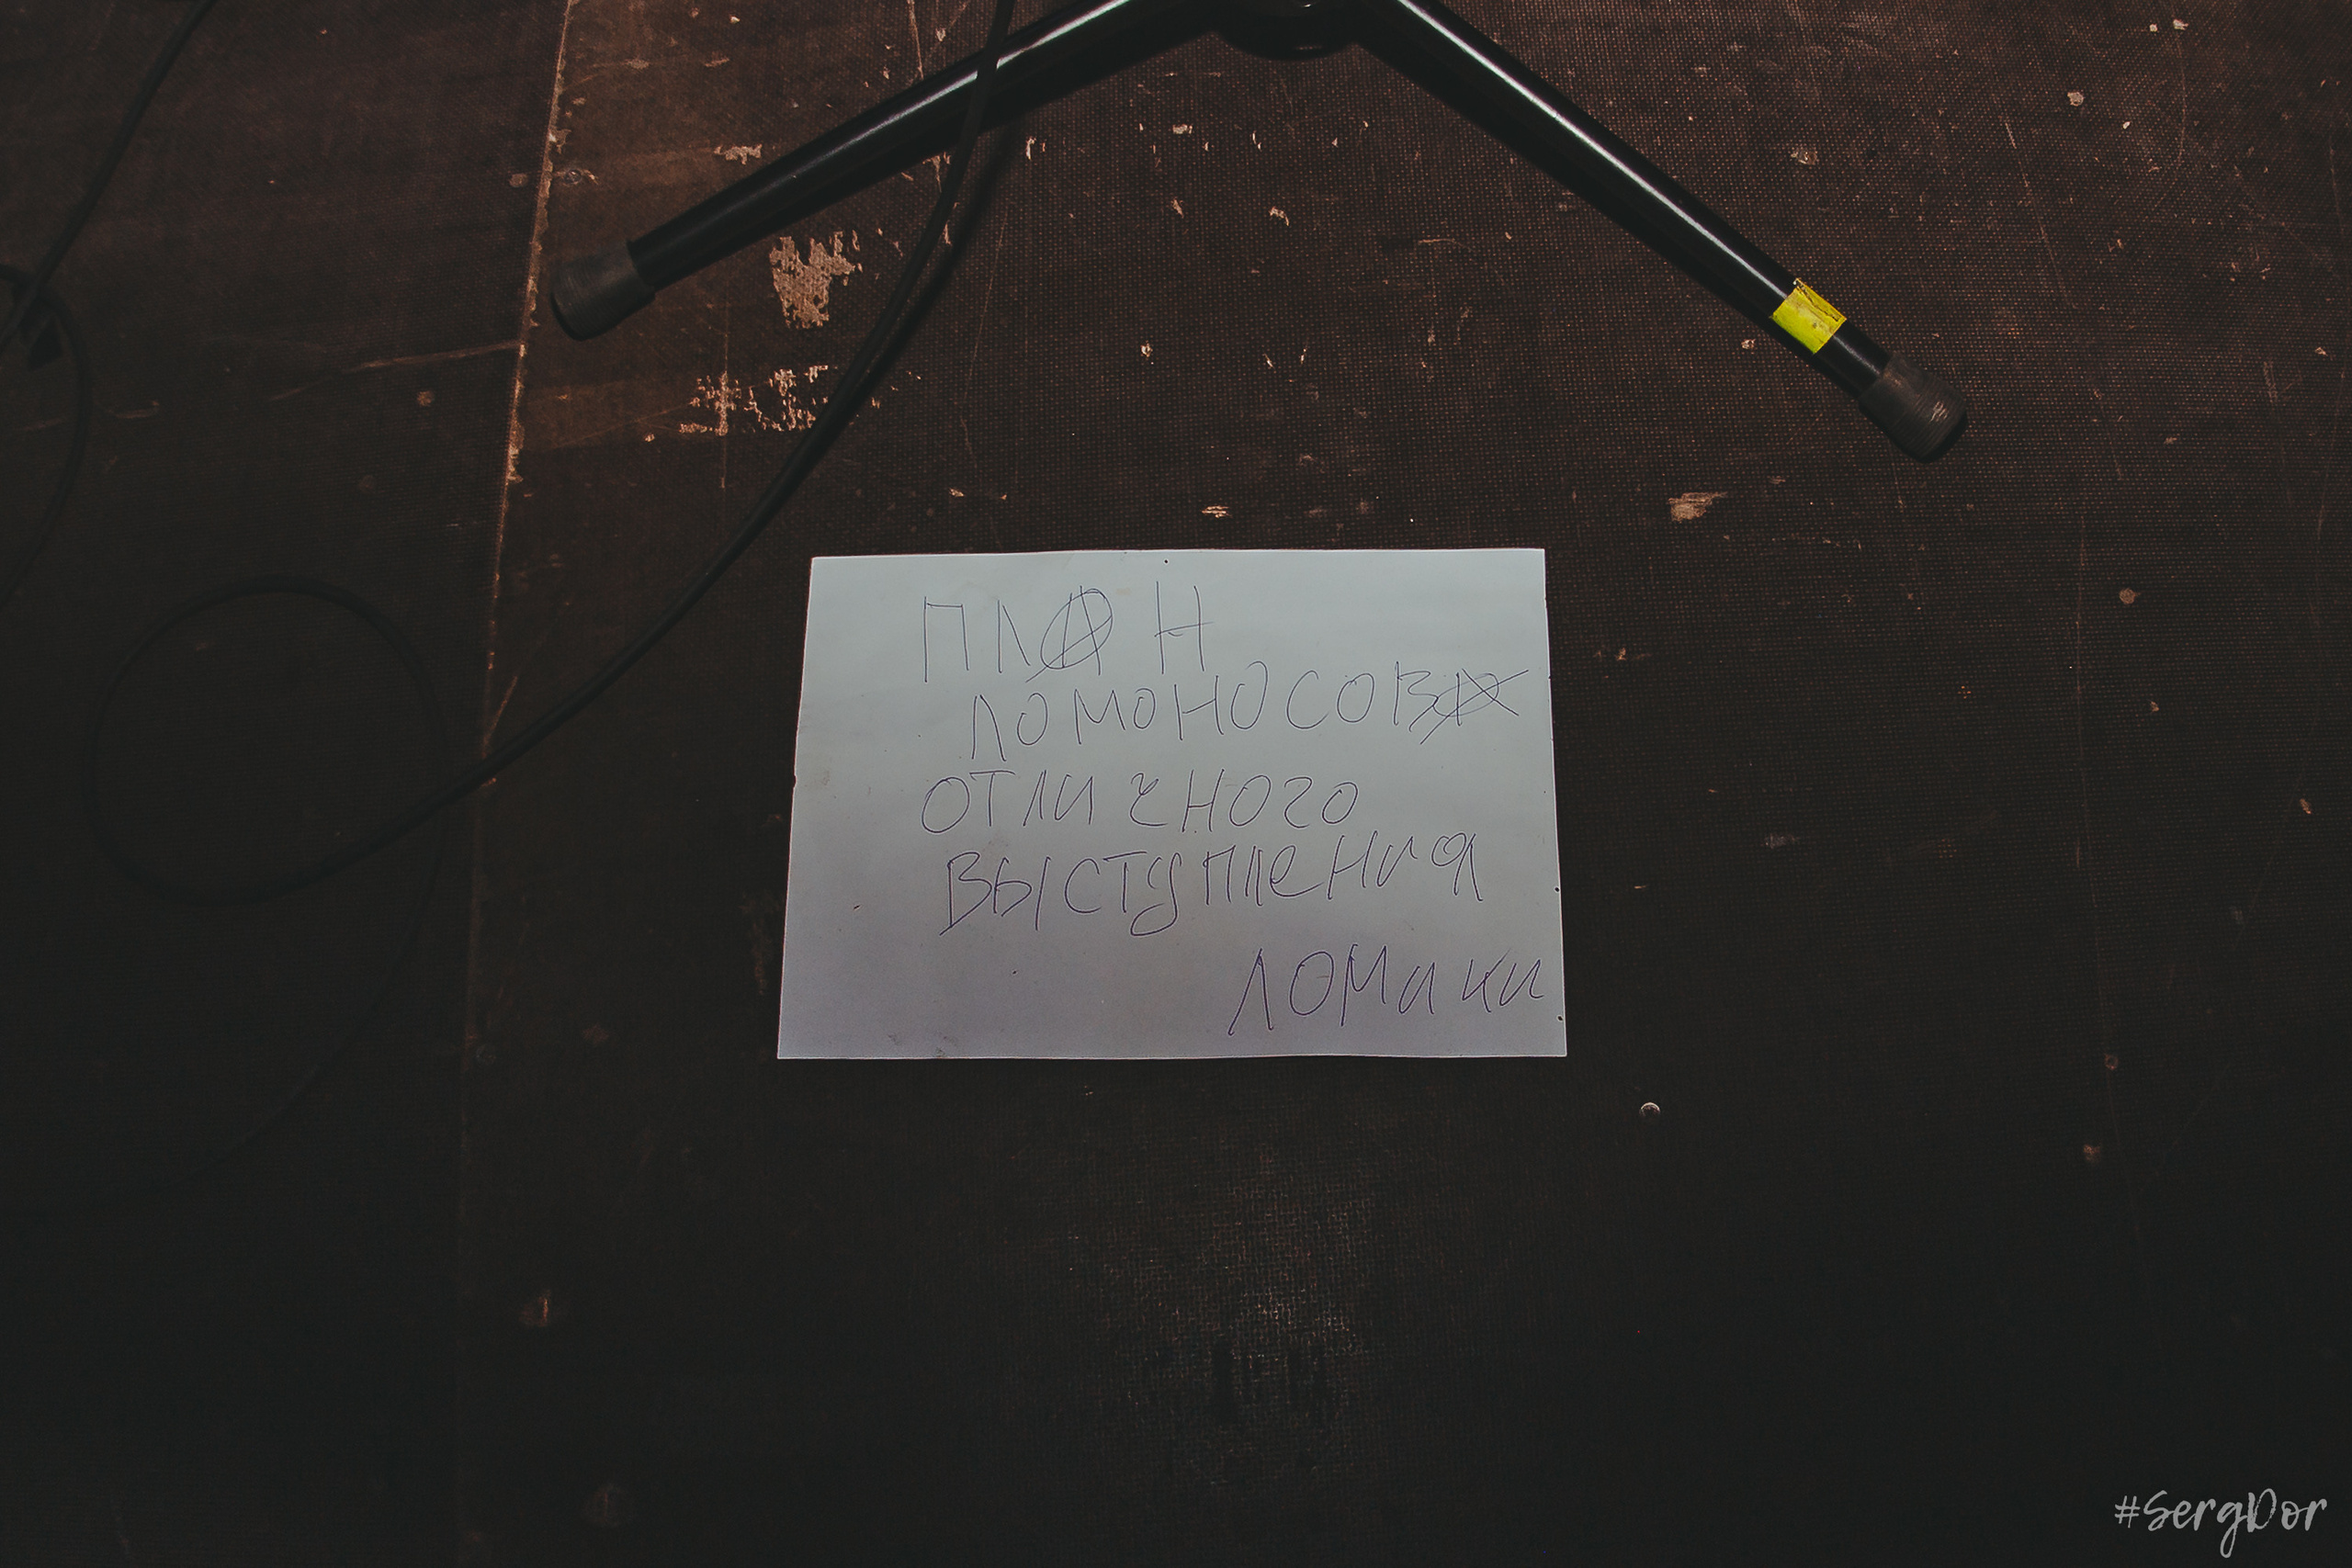 ПЛАН
ЛОМОНОСОВА
ОТЛИЧНОГО
ВЫСТУПЛЕНИЯ
ЛОМИКИ
#SergDor